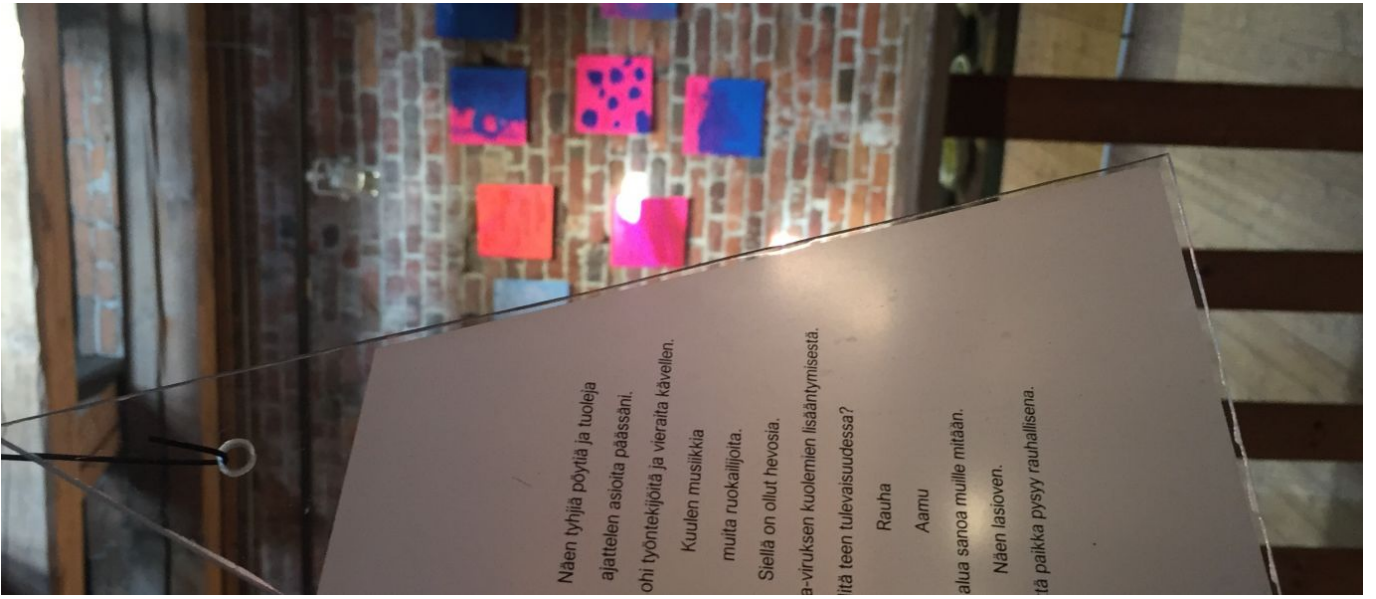 Näen tyhjiä pöytiä ja tuoleja
ajattelen asioita päässäni.
ohi työntekijöitä ja vieraita kävellen.
Kuulen musiikkia
muita ruokailijoita.
Siellä on ollut hevosia.
a-viruksen kuolemien lisääntymisestä.
teen tulevaisuudessa?
Rauha
Aamu
alua sanoa muille mitään.
Näen lasioven.
tä paikka pysyy rauhallisena.